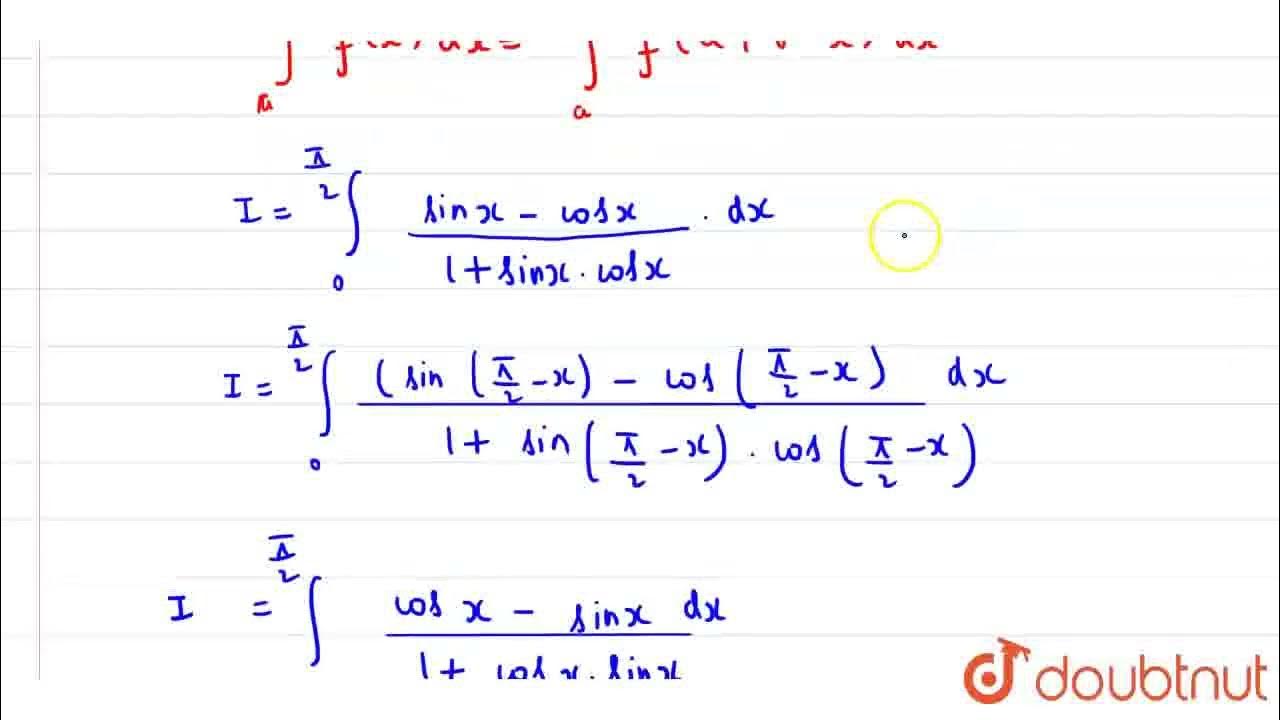 a a
I = ∫₀^(π/2) (sinx - cosx)/(1+sinx.cosx) . dx
I = ∫₀^(π/2) (sin(π/2 -x) - cos(π/2 -x) dx / 1+ sin(π/2 -x) . cos(π/2 -x)
I = ∫^(π/2) cos x - sinx dx / 1+ cosx.sinx
doubtnut